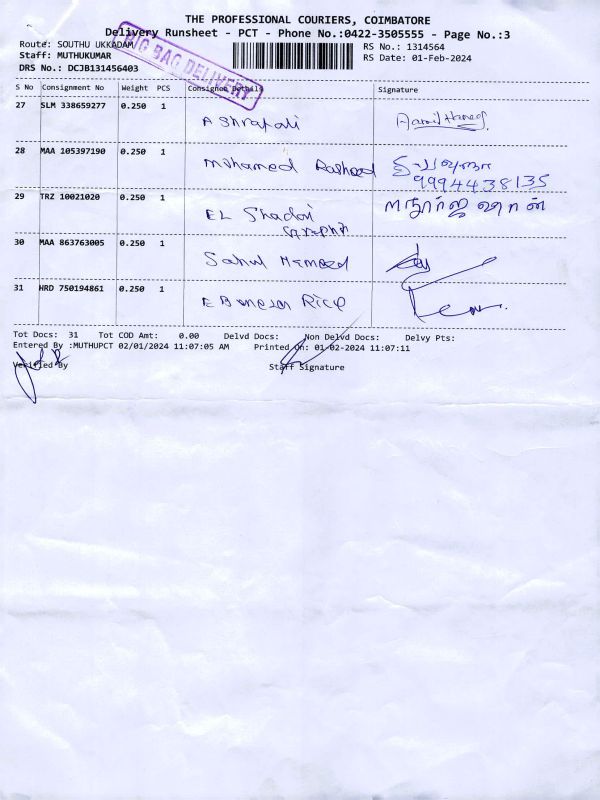 THE PROFESSIONAL COURIERS, COIMBATORE
Delivery Runsheet - PCT - Phone No.:0422-3505555 - Page No.:3
Route: SOUTHU UKKADAM
RS No.: 1314564
Staff: MUTHUKUMAR
RS Date: 01-Feb-2024
DRS No.: DCJB131456403
BAG DELIVERY
S No Consignment No Weight PCS Consignee Details Signature
27 SLM 338659277 0.250 1 Ashrafali
28 MAA 105397190 0.250 1 Mohamed Rasheed
9994438135
29 TRZ 10021020 0.250 1 EL Shadai
30 MAA 863763005 0.250 1 Sahul Hameed
31 HRD 750194861 0.250 1 Ebenezer Rice
Tot Docs: 31 Tot COD Amt: 0.00 Delvd Docs: Non Delvd Docs: Delvy Pts:
Entered By :MUTHUPCT 02/01/2024 11:07:05 AM Printed On: 01-02-2024 11:07:11
Verified By Staff Signature